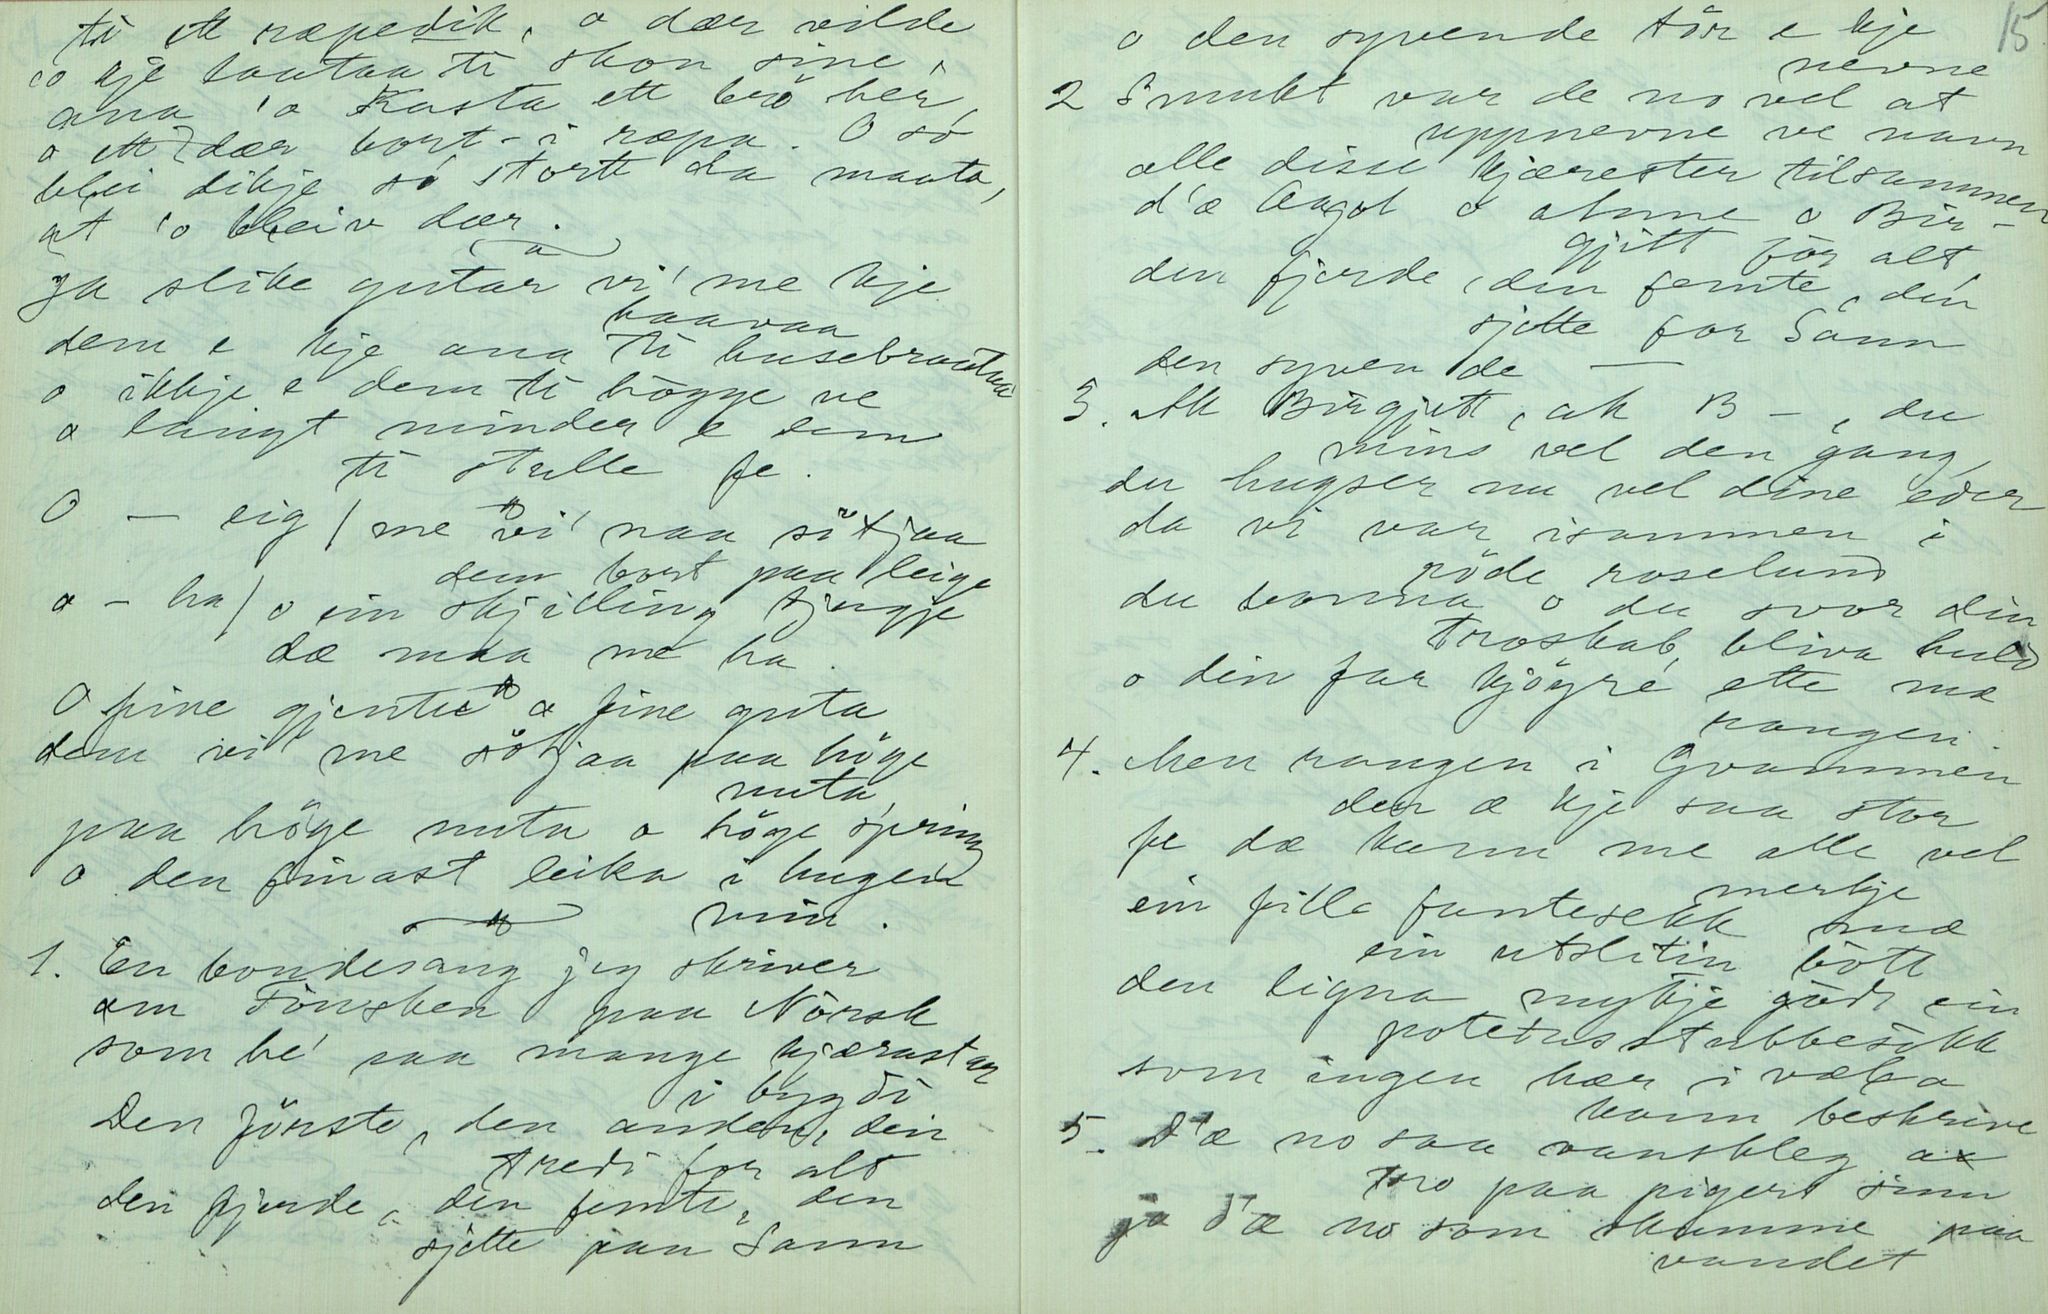 ti ett ræpedik, o dær vilde
'o kje laataa ti skon sine,
ana 'o Kasta ett brö her,
o ett dær bort-i ræpa. O so
blei dikje so stortt da maata,
at 'o bleiv dær.
Ja slike gutar vi' me kje
haavaa
dem e kje ana ti husebraataa
o ikkje e dem ti högge ve
o langt minder e dem
ti stelle fe.
O – eig / me vi' naa sötjaa
dem bort paa leige
o – ha / o ein skjilling tjugje
dæ maa me ha.
O fine gjentu o fine guta
dem vil me sötjaa paa höge
nuta,
paa höge nuta o höge spring
o den finast leika i hugen
min.
1. En bondesang jeg skriver
om Tönsken paa Nörsk
som he' saa mange kjærastar
i bygdi
Den förste, den anden, den
tredi for alt
den fjerde, den femte, den
sjette paa Sann
15
o den syvende tör e kje
nevne
2 Smukt var de no vel at
uppnevne ve navn
alle disse kjærester tilsammen
d'æ Aagot o Anne o Bir-
gjitt för alt,
den fjerde, den femte, den
sjette for Sann
den syvende —
3. Ak Birgjitt, ak B –, du
mins vel den gang,
du hugser nu vel dine eder
da vi var isammen i
röde roselund
du banna o du svor din
troskab bliva huld
o din far kjögre' ette mæ
rangen.
4. Men rangen i Gvammen
den æ kje saa stor
fe dæ kunn me alle vel
merkje
ein fille fantesekk mæ
ein utslitin bött
den ligna mykje godt ein
potetusstubbesekk
som ingen hær i væla
kann beskrive
5. D'æ no saa vanskleg at
tro paa pigers sinn
ja d'æ no som skumme paa
vandet